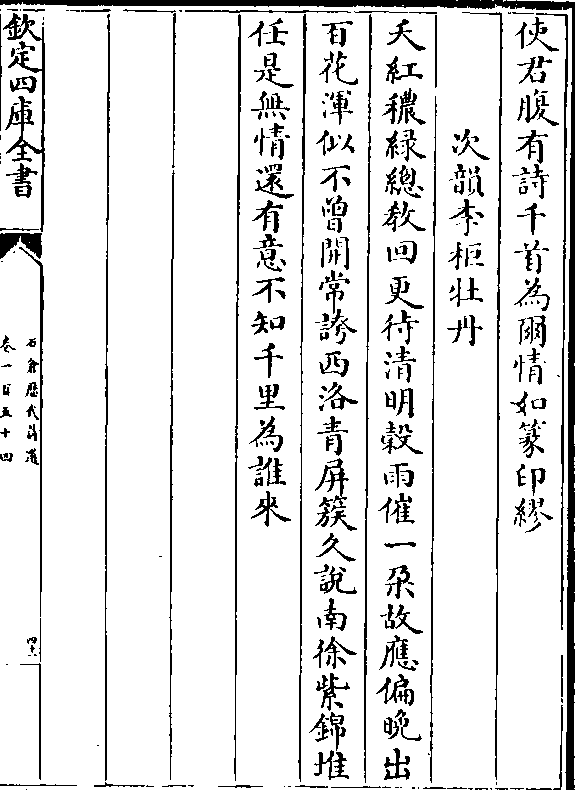 使君腹有詩千首為爾情如篆印繆
次韻李柜牡丹
夭紅穠緑總教回更待清明榖雨催一朶故應偏晚出
百花渾似不曾開常誇西洛青屏簇久說南徐紫錦堆
任是無情還有意不知千里為誰來
欽定四庫全書
石倉歷代詩選
卷一百五十四